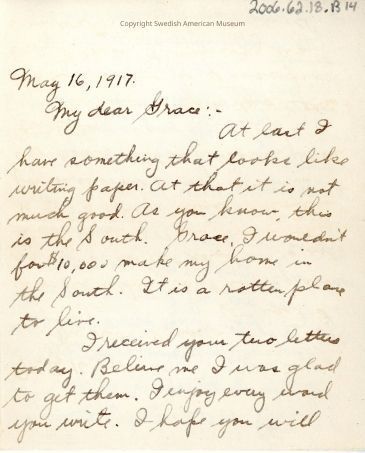 2006.62.18.B 14
Copyright Swedish American Museum
May 16, 1917.
My dear Grace:-
At last I
have something that looks like
writing paper. At that it is not
much good. As you know, this
is the South. Grace, I wouldn't
for $10,000 make my home in
the South. It is a rotten place
to live.
I received your two letters
today. Believe me I was glad
to get them. I enjoy every word
you write. I hope you will